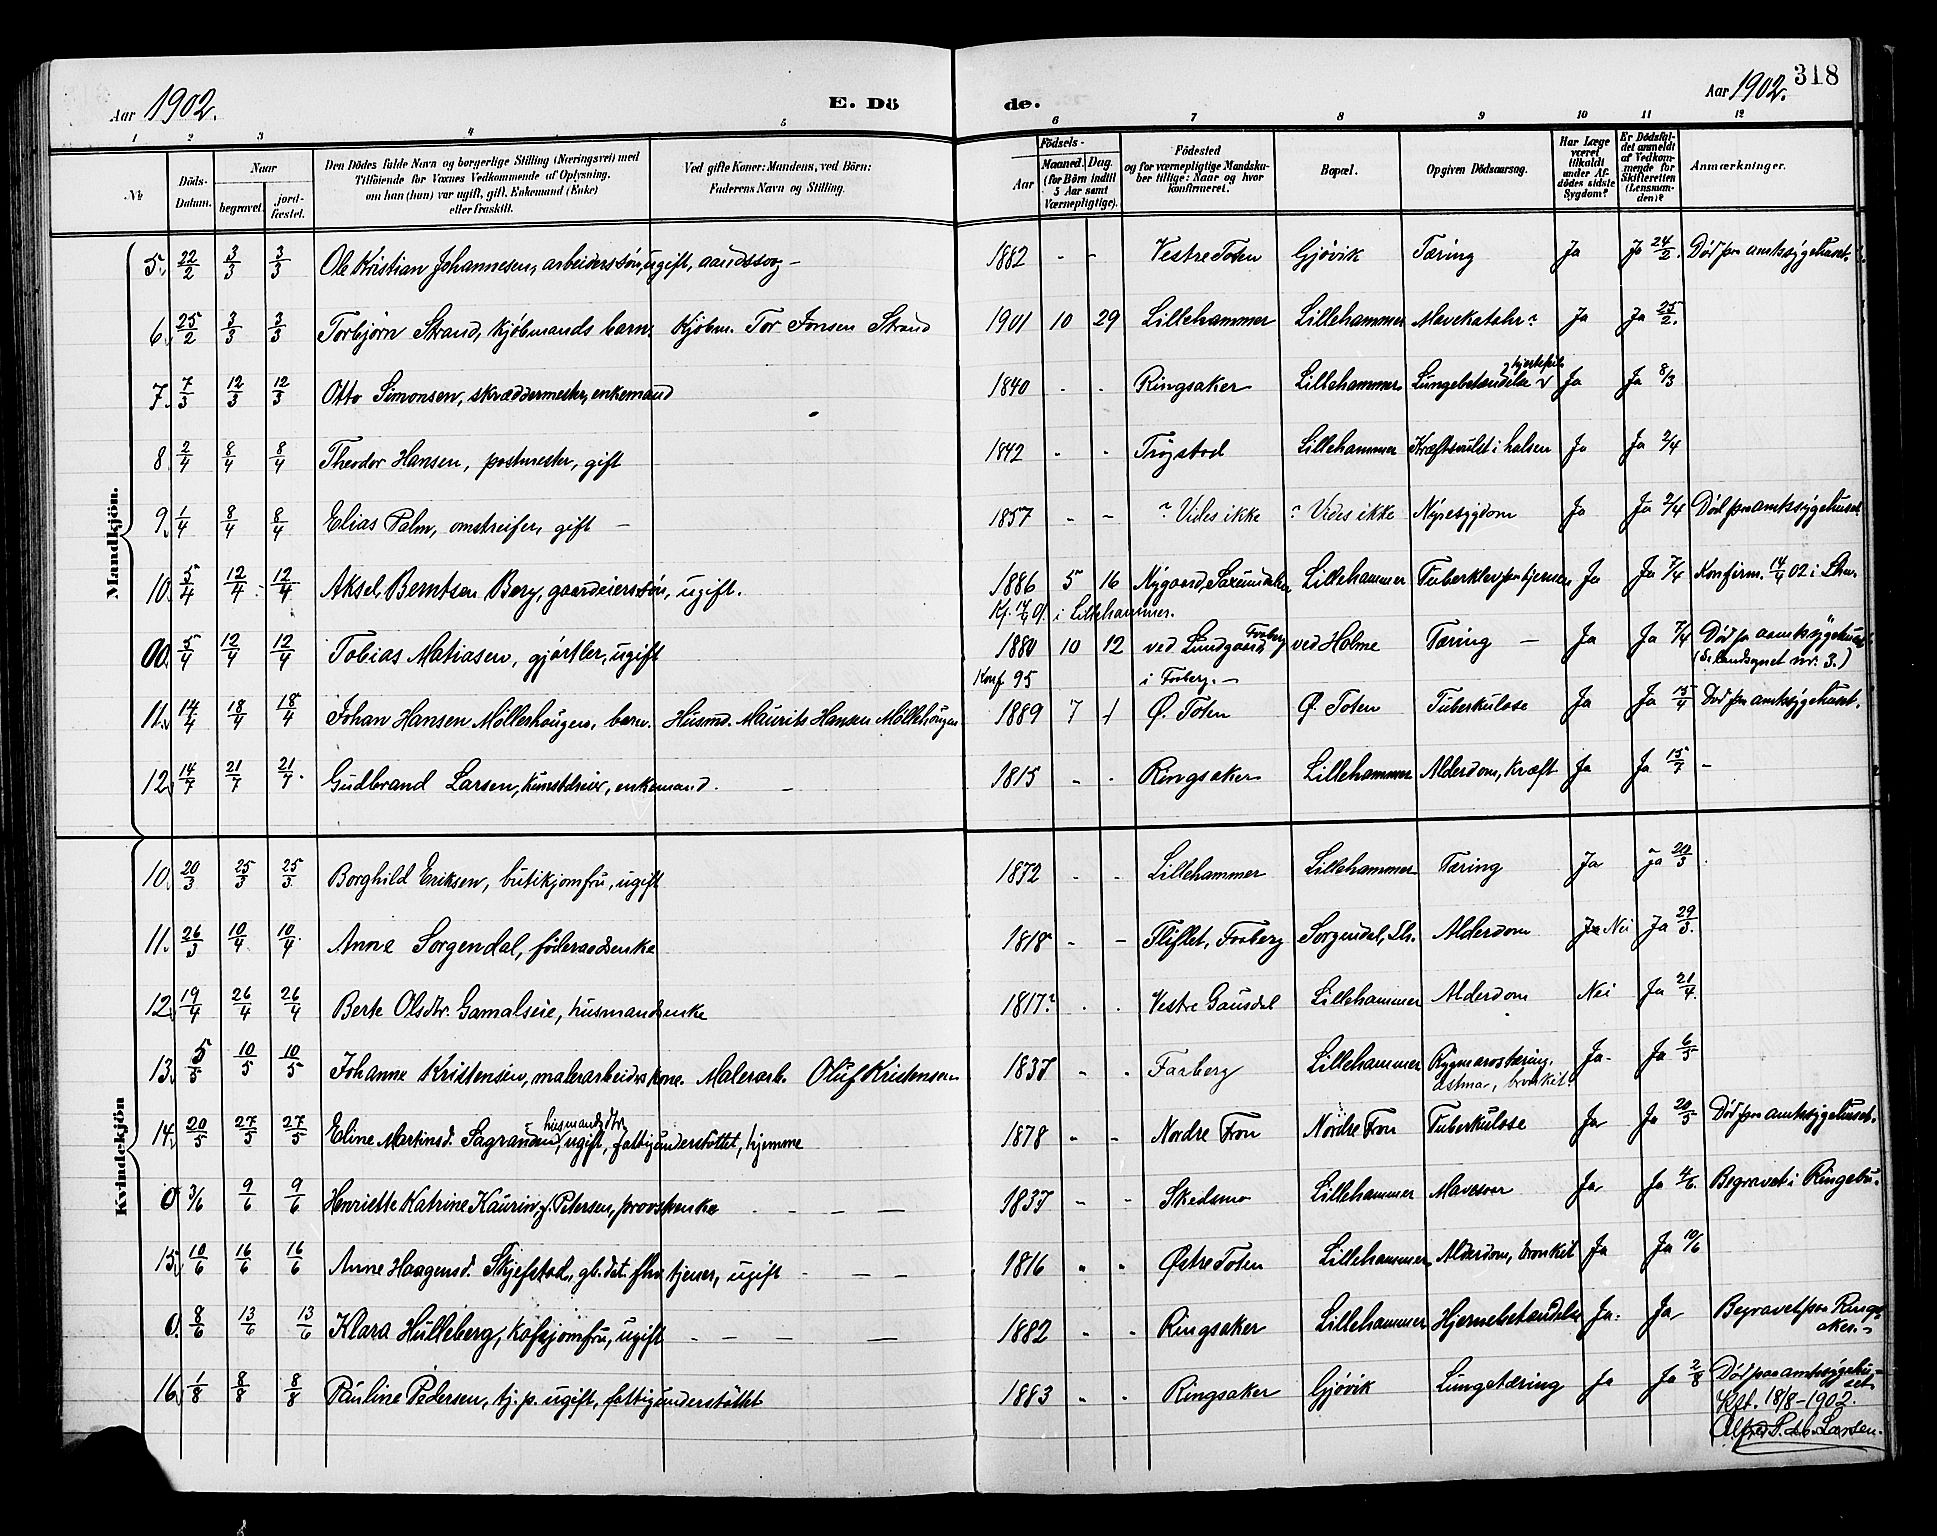 318
Aar 1902. E. Dö de. Aar 1902.
1 2 3 4 5 6 7 8 9 10 11 12
Nr Döds-Datum. Naar begravet. jord-fæstet. Den Dödes fulde Navn og borgerlige Stilling (Næringsvei) med Tilföiende for Voxnes Vedkommende af Oplysning, om han (hun) var ugift, gift, Enkemand (Enke) eller fraskilt. Ved gifte Koner: Mandens, ved Börn: Faderens Navn og Stilling. Födsels- Aar Maaned. Dag. (for Börn indtil 5 Aar samt Værnepligtige). Födested og for værnepligtige Mandskaber tillige: Naar og hvor konfirmeret. Bopæl. Opgiven Dödsaarsag. Har Læge været tilkaldt under Afdödes sidste Sygdom? Er Dödsfaldet anmeldt af Vedkommende for Skifteretten (Lensmanden)? Anmærkninger.
Mandkjön.
5. 22/2 3/3 3/3 Ole Kristian Johannesen, arbeiderssøn, ugift, aandssvag – 1882 - - Vestre Toten Gjøvik Tæring Ja Ja 24/2. Død paa amtssygehuset.
6. 25/2 3/3 3/3 Torbjørn Strand, kjøbmands barn. Kjøbm. Tor Jonsen Strand 1901 10 29 Lillehammer Lillehammer Mavekatahr? Ja Ja 25/2.
7. 7/3 12/3 12/3 Otto Simonsen, skræddermester, enkemand 1840 - - Ringsaker Lillehammer Lungebetændelse Ja Ja 8/3
8. 2/4 8/4 8/4 Theodor Hansen, postmester, gift 1842 - - Trøgstad Lillehammer Kræftsvulst i halsen Ja Ja 2/4
9. 1/4 8/4 8/4 Elias Palm, omstreifer, gift – 1857 - - ? Vides ikke ? Vides ikke Nyresygdom Ja Ja 2/4 Død paa amtssygehuset
10. 5/4 12/4 12/4 Aksel Berntsen Berg, gaardeierssøn, ugift. 1886 5 16 Nygaard, Saxumdalen Lillehammer Tuberkler paa hjernen Ja Ja 7/4 Konfirm. 14/4 02 i Lhm.
i Lillehammer.
5/4 12/4 12/4 Tobias Matiasen, gjørtler, ugift 1880 10 12 ved Lundgaard Faaberg ved Holme Tæring – Ja Ja 7/4 Død paa amtssygehuset
Konf. 95 i Faaberg. – (Se landsognet nr. 3.)
11. 14/4 18/4 18/4 Johan Hansen Møllerhaugen, barn. Husmd. Maurits Hansen Møllehaugen 1889 7 1 Ø. Toten Ø. Toten Tuberkulose Ja Ja 15/4 Død paa amtssygehuset.
12. 14/7 21/7 21/7. Gudbrand Larsen, kunstdreier, enkemand. – 1815 - - Ringsaker Lillehammer Alderdom, kræft Ja Ja 15/7 –
Kvindekjön
10. 20/3 25/3 25/3 Borghild Eriksen, butikjomfru, ugift 1872 - - Lillehammer Lillehammer Tæring Ja Ja 20/3.
11. 26/3 10/4 10/4 Anne Sorgendal, føderaadsenke 1818 - - Fliflet, Faaberg Sorgendal, Lh. Alderdom Ja Nei Ja 29/3.
12. 19/4 26/4 26/4 Berte Olsdtr. Gamalseie, husmandsenke 1817? - - Vestre Gausdal Lillehammer Alderdom Nei Ja 21/4.
13. 5/5 10/5 10/5 Johanne Kristensen, malerarbeiders kone. Malerarb. Oluf Kristensen 1837 - - Faaberg Lillehammer Rygmarvstæring, Ja- Ja 6/5
astma, bronkit.
husmandsdtr.
14. 20/5 27/5 27/5 Eline Martinsd. ugift, fattigunderstøttet, hjemme 1878 - - Nordre Fron Nordre Fron Tuberkulose Ja Ja 20/5 Død paa amtssygehuset.
0 3/6 9/6 9/6 Henriette Katrine Kaurin, f. Petersen, provstenke 1837 - - Skedsmo Lillehammer Mavesaar Ja Ja 4/6. Begravet i Ringebu.
15. 10/6 16/6 16/6 Anne Haagensd. Skjefstad, gl. dat. fhv. tjener, ugift 1816 - - Østre Toten Lillehammer Alderdom, bronkit Ja Ja 10/6
0. 8/6 13/6 13/6 Klara Hulleberg, kafejomfru, ugift 1882 - - Ringsaker Lillehammer Hjernebetændelse Ja. Ja Begravet paa Ringsaker. –
16. 1/8 8/8 8/8 Pauline Pedersen, tj. p. ugift, fattigunderstøttet 1883 - - Ringsaker Gjøvik Lungetæring Ja Ja 2/8 Død paa amtssygehuset
18/8 – 1902.
Alfred Larsen.